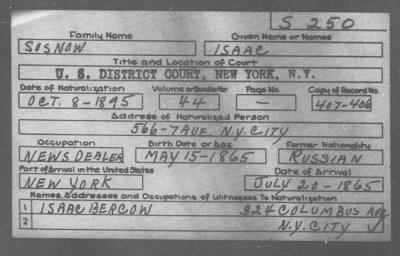 S 250
Family Name Given Name or Names
SOSNOW ISAAC
Title and Location of Court
U. S. DISTRICT COURT, NEW YORK, N.Y.
Date of Naturalization Volume or Bundle No. Page No. Copy of Record No.
OCT. 8-1895 44 — 407-406
Address of Naturalized Person
566-7 AVE. N.Y. CITY
Occupation Birth Date or Age Former Nationality
NEWS DEALER MAY 15-1865 RUSSIAN
Port of Arrival in the United States Date of Arrival
NEW YORK JULY 20-1865
Names, Addresses and Occupations of Witnesses To Naturalization
1 ISAAC BERCOW 924 COLUMBUS AVE
2 N.Y. CITY ✓